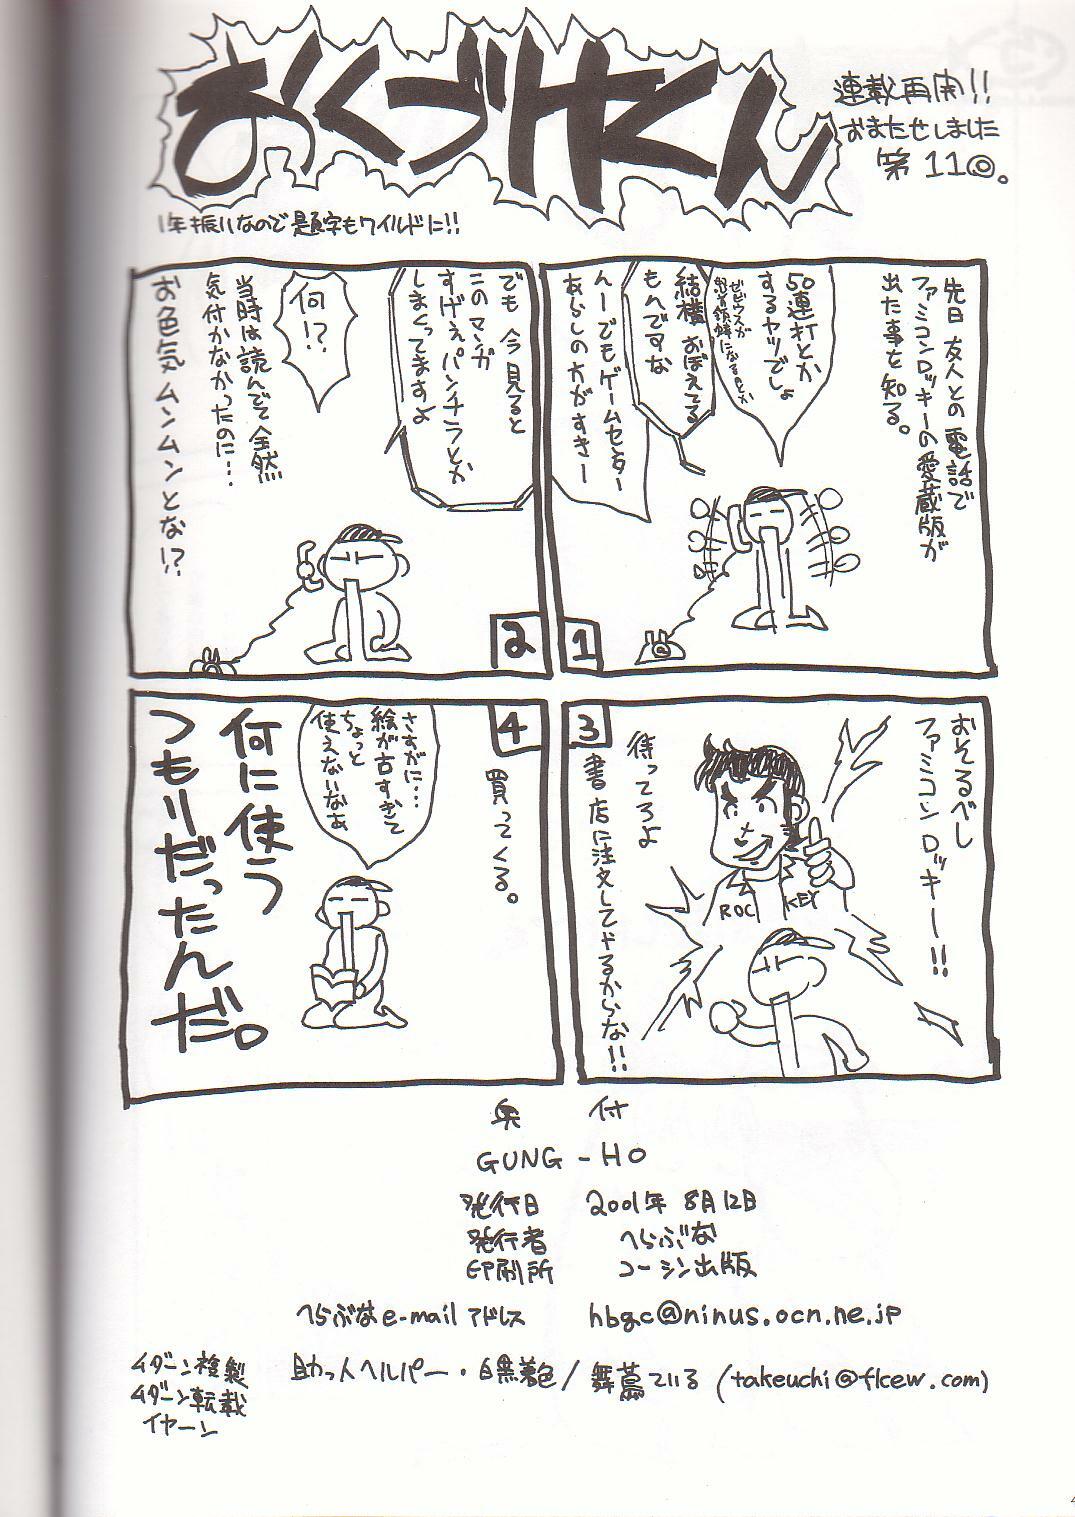 おくづけくん
連載再開!!
おまたせしました
第11回。
1年振りなので題字もワイルドに!!
先日 友人との電話で
ファミコンロッキーの愛蔵版が
出た事を知る。
50連打とか
するヤツでしょ
ゼビウスが
結構おぼえてる
もんですな
んーでもゲームセンター
あらしの方がすきー
1
でも 今見ると
このマンガ
すげぇパンチラとか
しまくってますよ
何!?
当時は読んでて全然
気付かなかったのに…
お色気ムンムンとな!?
2
おそるべし
ファミコンロッキー!!
ROC KEY
待ってろよ
書店に注文してやるからな!!
3
4
買ってくる。
さすがに…
絵が古すぎて
ちょっと
使えないなぁ
何に使う
つもりだったんだ。
奥付
GUNG-HO
発行日 2001年8月12日
発行者 へらぶな
印刷所 コーシン出版
へらぶなe-mailアドレス hbgc@ninus.ocn.ne.jp
助っ人ヘルパー・白黒着色/舞蔦ている (takeuchi@flcew.com)
ムダーン複製
ムダーン転載
イヤーン